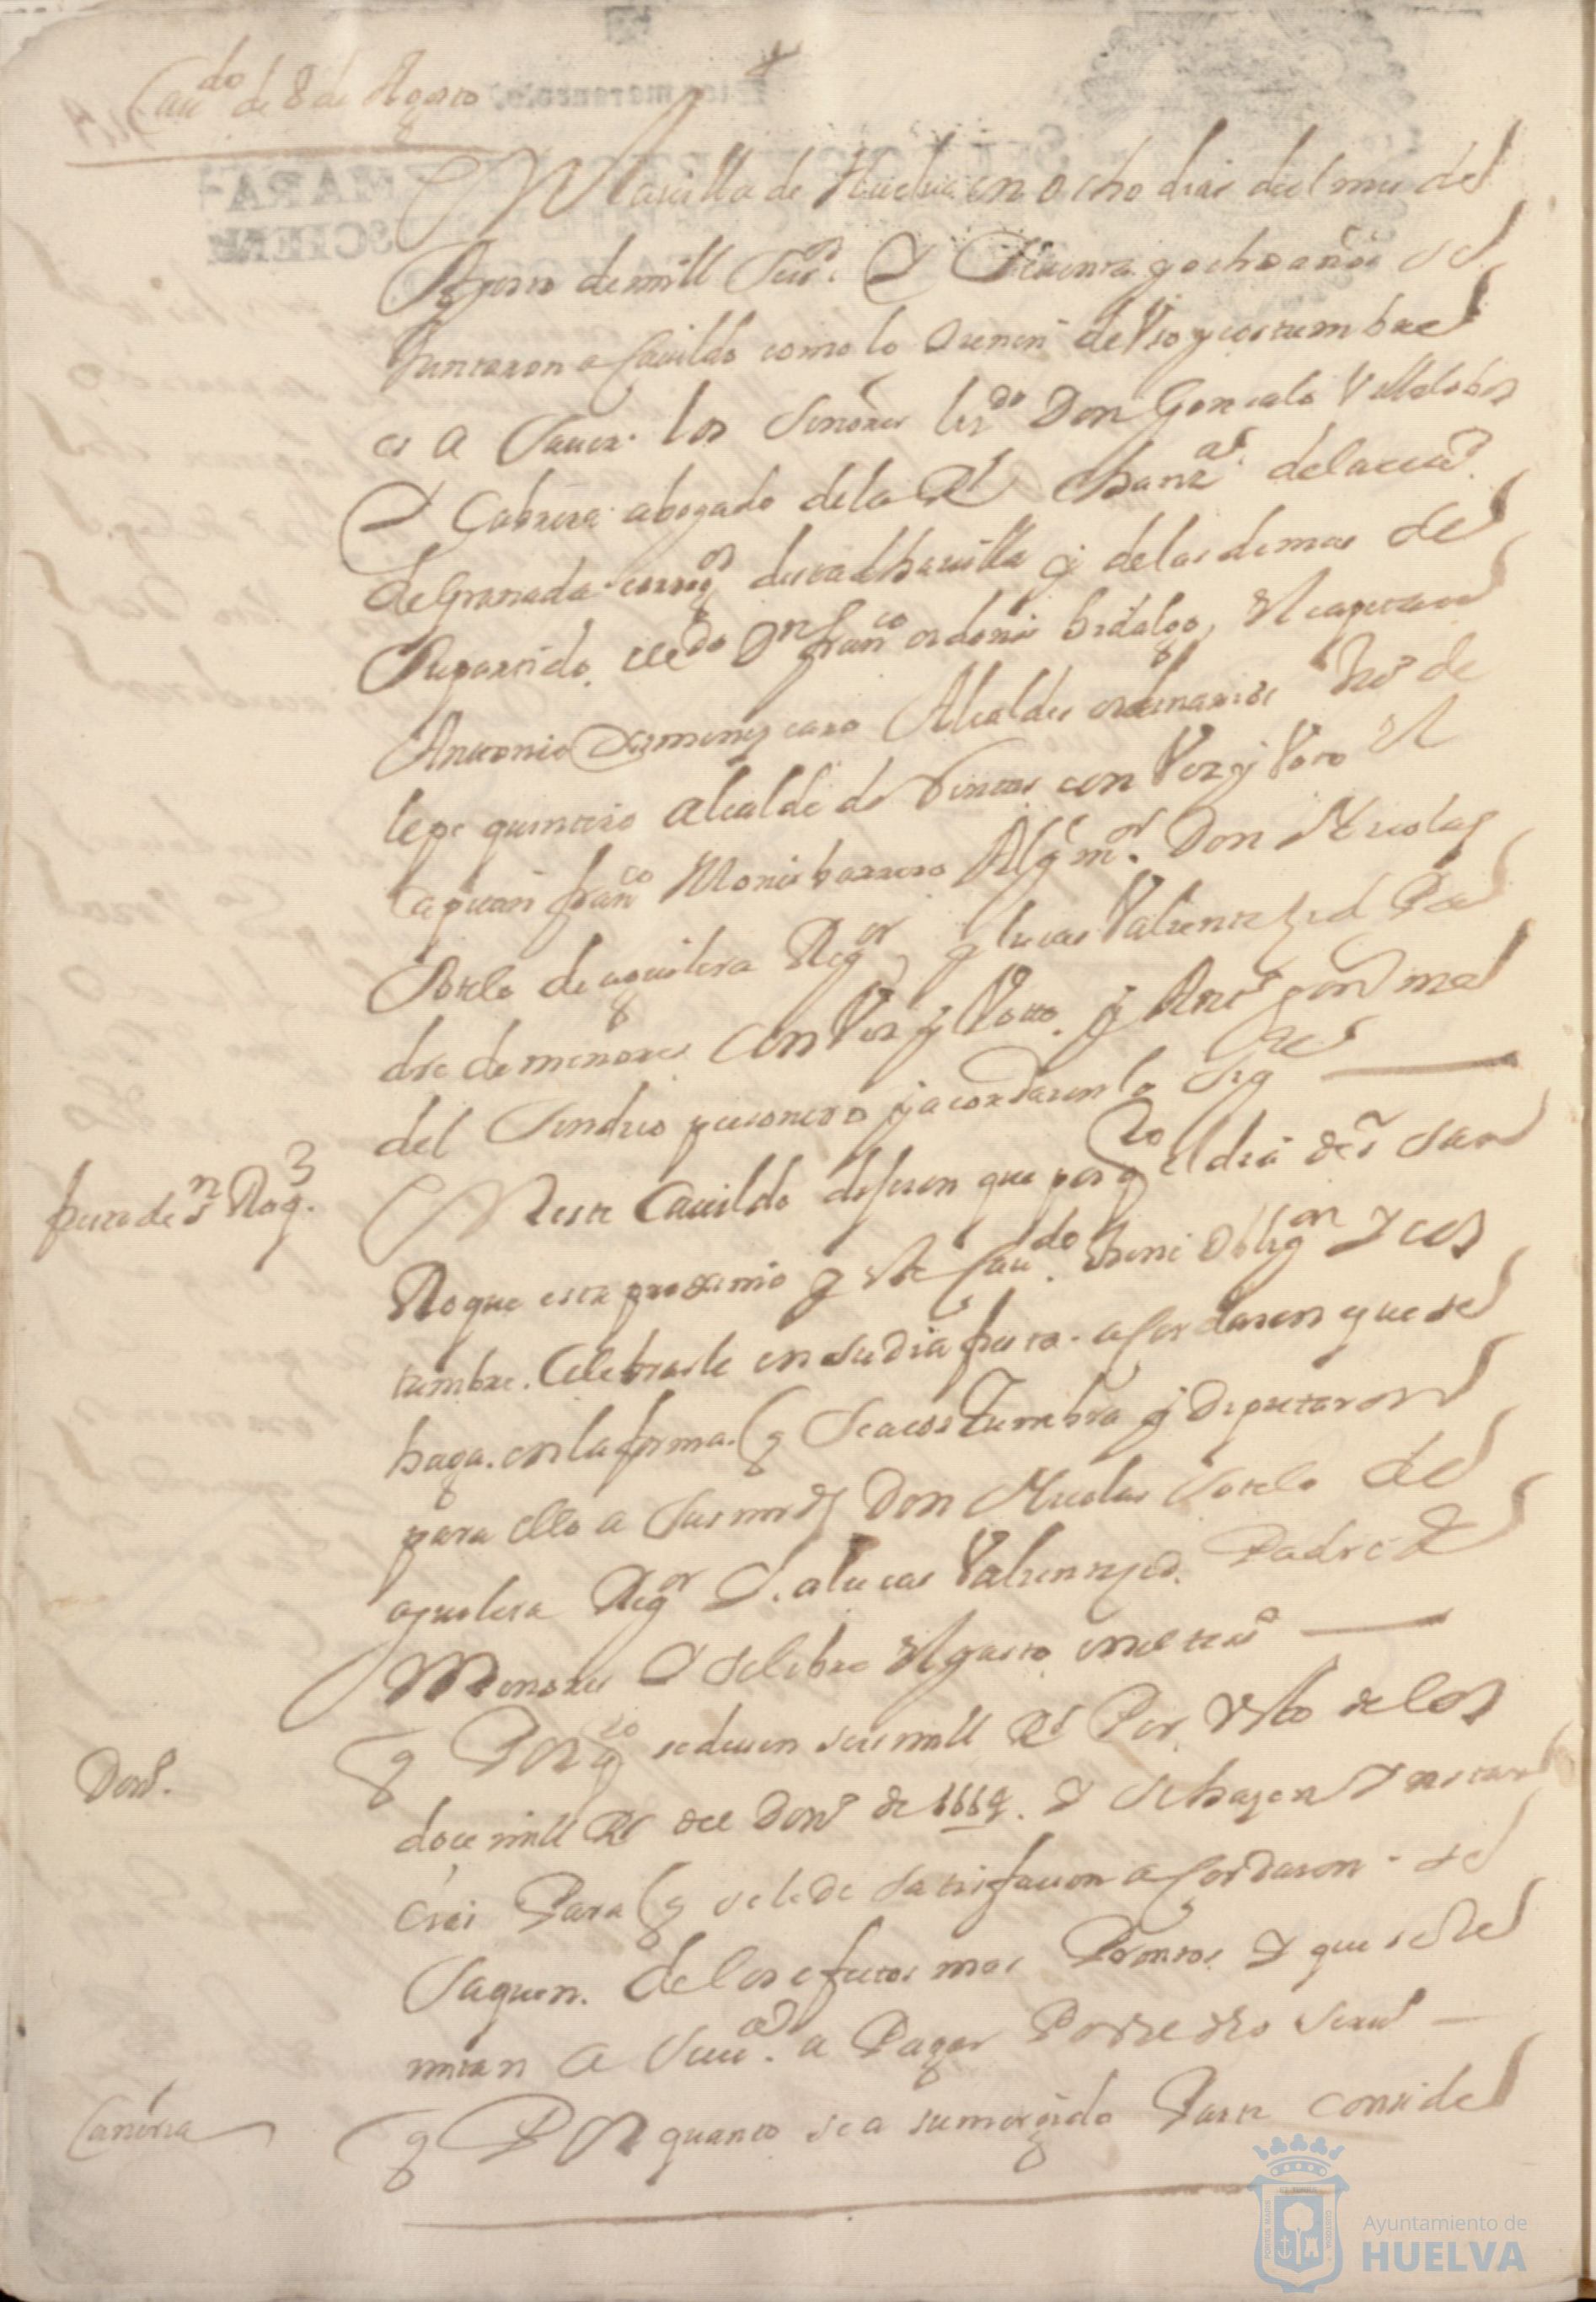 Cau.do de 8 de Agosto
En la uilla de Huelua en ocho dias del mes de
Agosto de mill Seis.s Y Ciquenta y ocho años se
Juntaron a Cauildo como lo tienen de Vso y costumbre
es a Sauer. los Señores liz.do Don Gonzalo Villalobos
Y Cabrera abogado de la R.l Chanz.a de la ciu.d
de Granada correg.or desta dha uilla y de las demas de
Su partido, liz.do D.n fran.co ordoñes hidalgo, El capitan
Antonio Ximenez caro Alcaldes ordinarios
lepe quintero alcalde de Sintas con Voz y Voto El
Capitan fran.co Monis barrero Alg.l m.or Don Nicolas
Sotelo de aguilera Reg.or y lucas Valiente Pa
dre de menores Con Voz y Voto y
del Sindico personero y acordaron lo Sig.te
fiesta de S.n Roq.
En este Cauildo dijeron que por q.to el dia de S.r San
Roque esta proximo y este Cau.do tiene oblig.on Y cos
tumbre. Celebrarle en su dia fiesta. acordaron que se
haga. en la forma q Se acostumbra y diputaron
para ello a Sus mrds Don Nicolas Sotelo de
aguilera Reg.or Y. a lucas Valiente Padre de
Menores Y Se libre El gasto
Don.o
y Por q.to se deuen seis mill R.s Por resto de los
doce mill R.s del Don.o de Y Se hazen Ynstan
cias Para q se le de satisfacion acordaron. se
Saquen. de los efectos mas Promtos Y que se Re
mitan a Seui.a a Pagar
Y Por quanto se a sumergido Parte conside
Ayuntamiento de
HUELVA